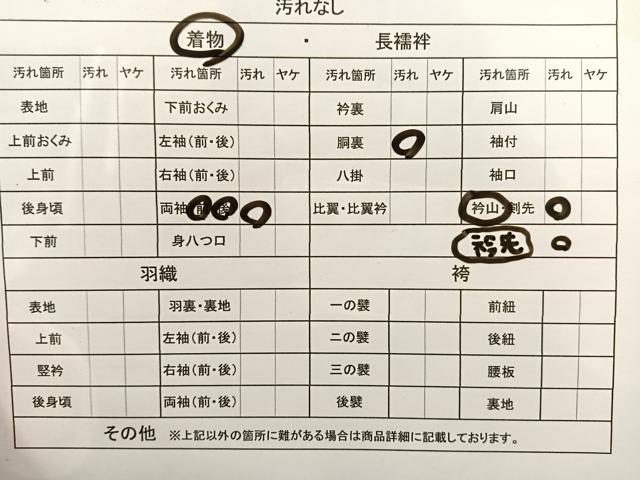 汚れなし
着物 ・ 長襦袢
汚れ箇所 汚れ ヤケ 汚れ箇所 汚れ ヤケ 汚れ箇所 汚れ ヤケ 汚れ箇所 汚れ ヤケ
表地 下前おくみ 衿裏 肩山
上前おくみ 左袖(前・後) 胴裏 袖付
上前 右袖(前・後) 八掛 袖口
後身頃 両袖(前・後) 比翼・比翼衿 衿山・剣先
下前 身八つ口 衿先
羽織 袴
表地 羽裏・裏地 一の襞 前紐
上前 左袖(前・後) 二の襞 後紐
竪衿 右袖(前・後) 三の襞 腰板
後身頃 両袖(前・後) 後襞 裏地
その他 ※上記以外の箇所に難がある場合は商品詳細に記載しております。